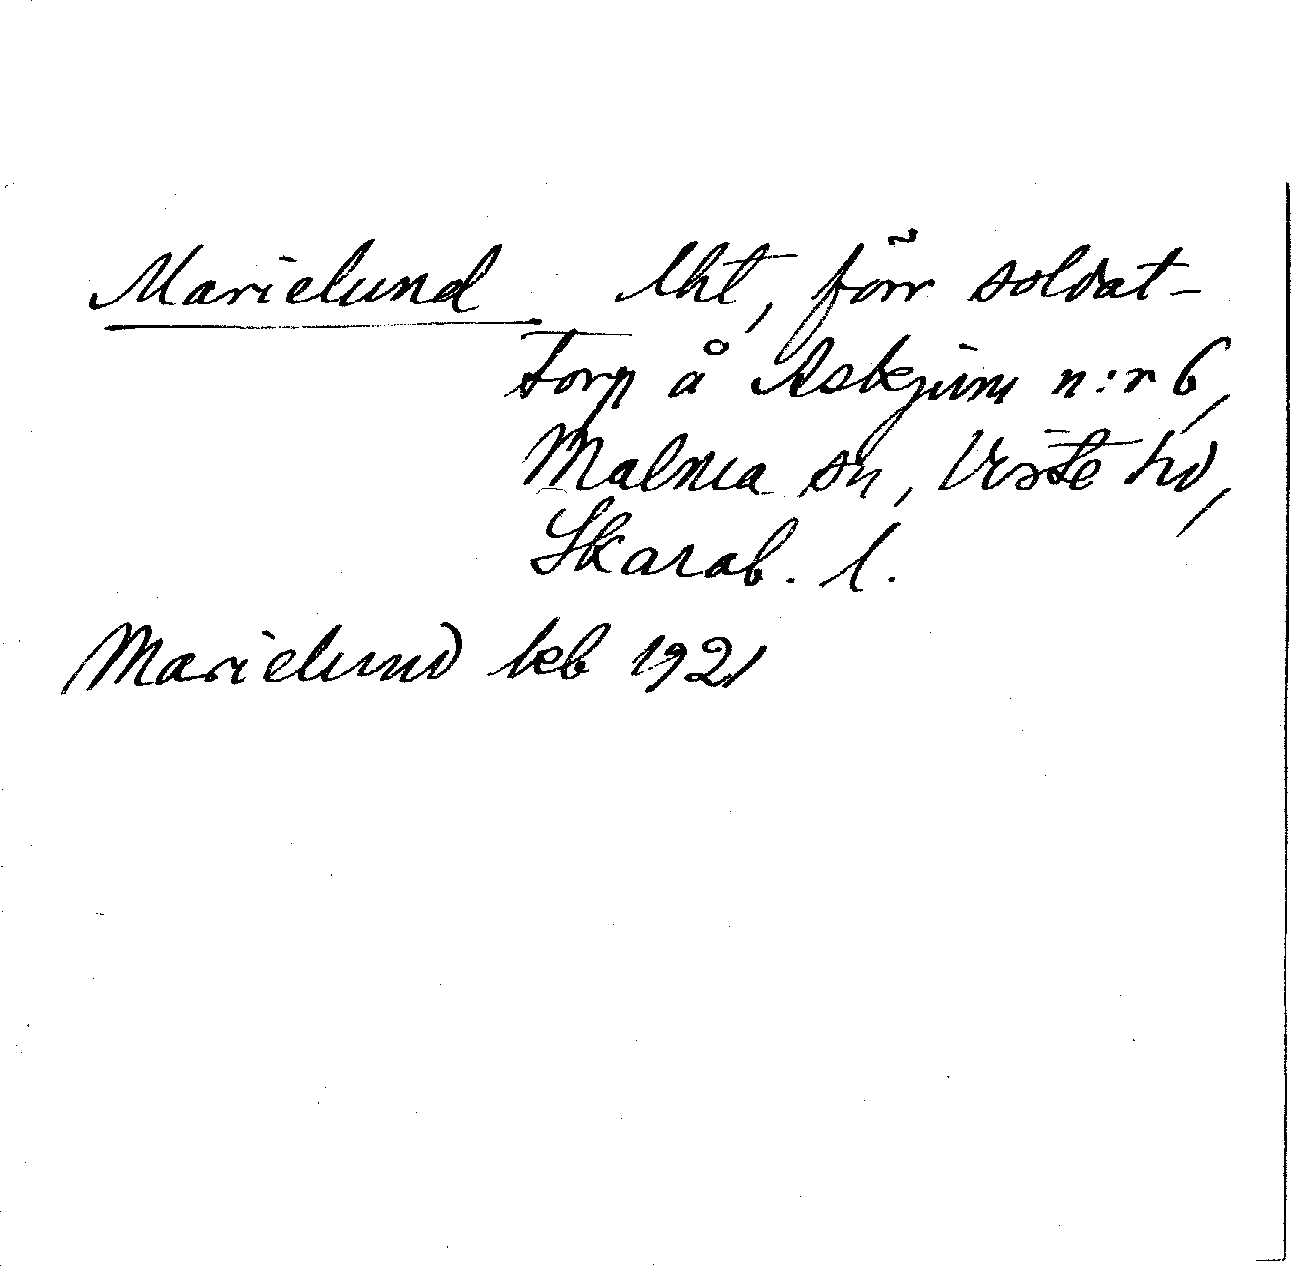 Marielund lht, förr soldat-
torp å Askjum n:r 6,
Malma sn, Viste hd,
Skarab. l.
Marielund kb 1921